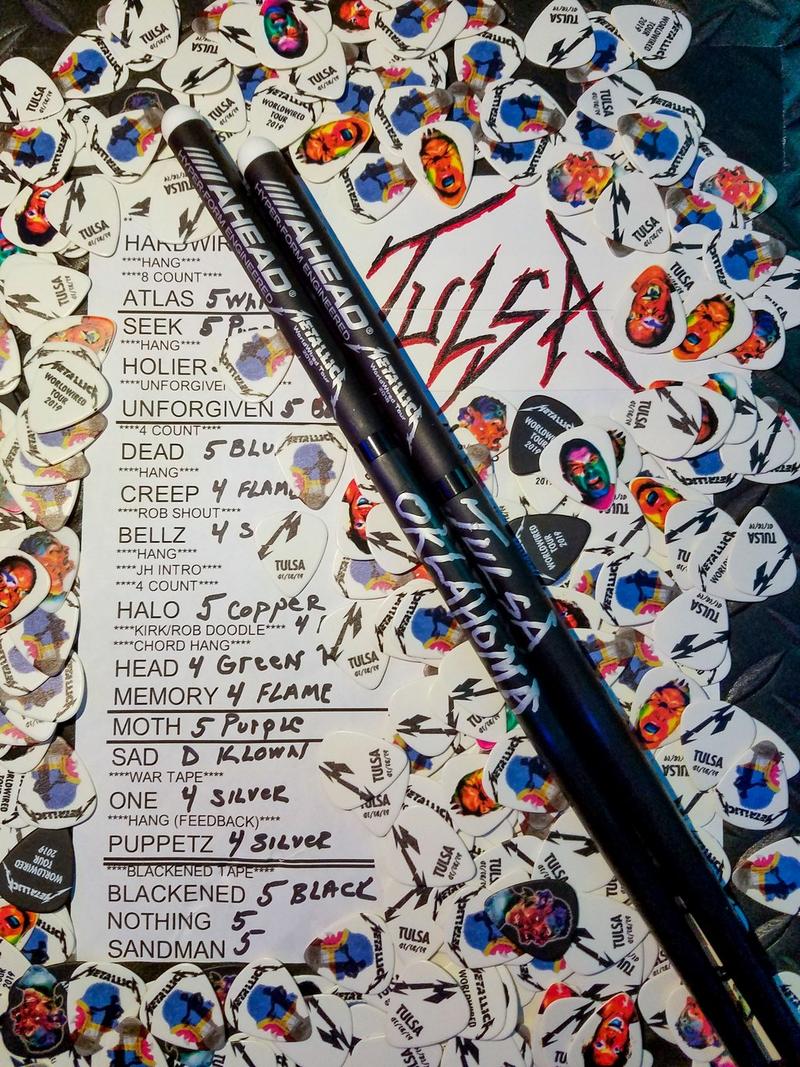 HARDWIR
****HANG****
****8 COUNT****
ATLAS 5
SEEK 5
****HANG****
HOLIER
****UNFORGIVE
UNFORGIVEN 5
****4 COUNT****
DEAD 5 BLU
****HANG****
CREEP 4 FLAM
****ROB SHOUT****
BELLZ 4 S
****HANG****
****JH INTRO****
****4 COUNT****
HALO 5 COPPER
****KIRK/ROB DOODLE**** 4
****CHORD HANG****
HEAD 4 GREEN
MEMORY 4 FLAME
MOTH 5 PURPLE
SAD D KLOWN
****WAR TAPE****
ONE 4 SILVER
****HANG (FEEDBACK)****
PUPPETZ 4 SILVER
****BLACKENED TAPE****
BLACKENED 5 BLACK
NOTHING 5
SANDMAN 5
TULSA
AHEAD®
HYPER-FORM ENGINEERED
METALLICA
WorldWired Tour
2019
OKLAHOMA
AHEAD®
HYPER-FORM ENGINEERED
METALLICA
WorldWired Tour
2019
TULSA
METALLICA
WORLDWIRED
TOUR
2019
TULSA
01/18/19